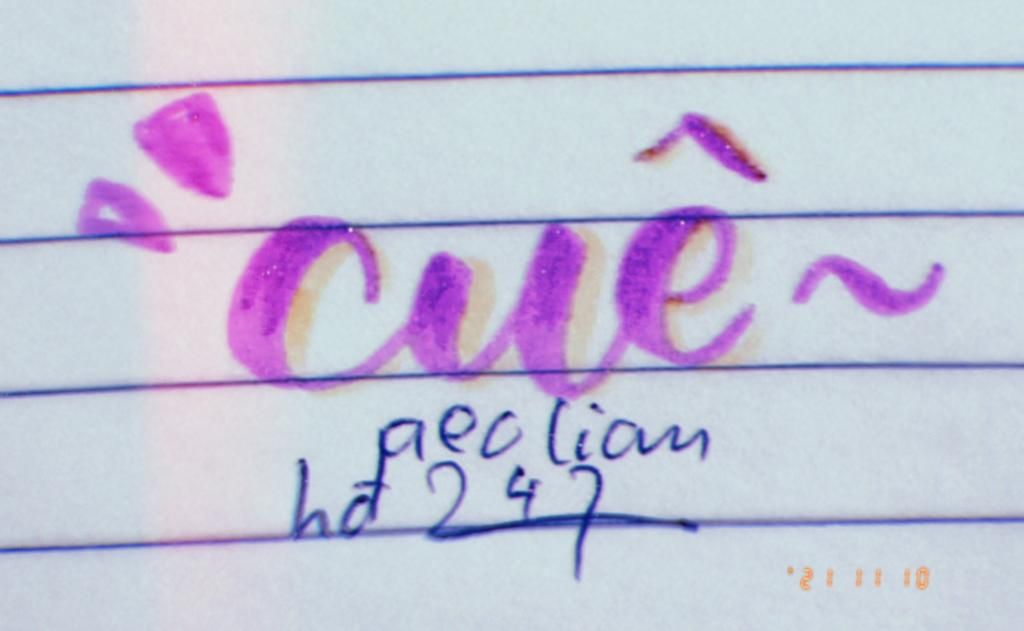 cuê~
aeolian
hđ 247
'21 11 10